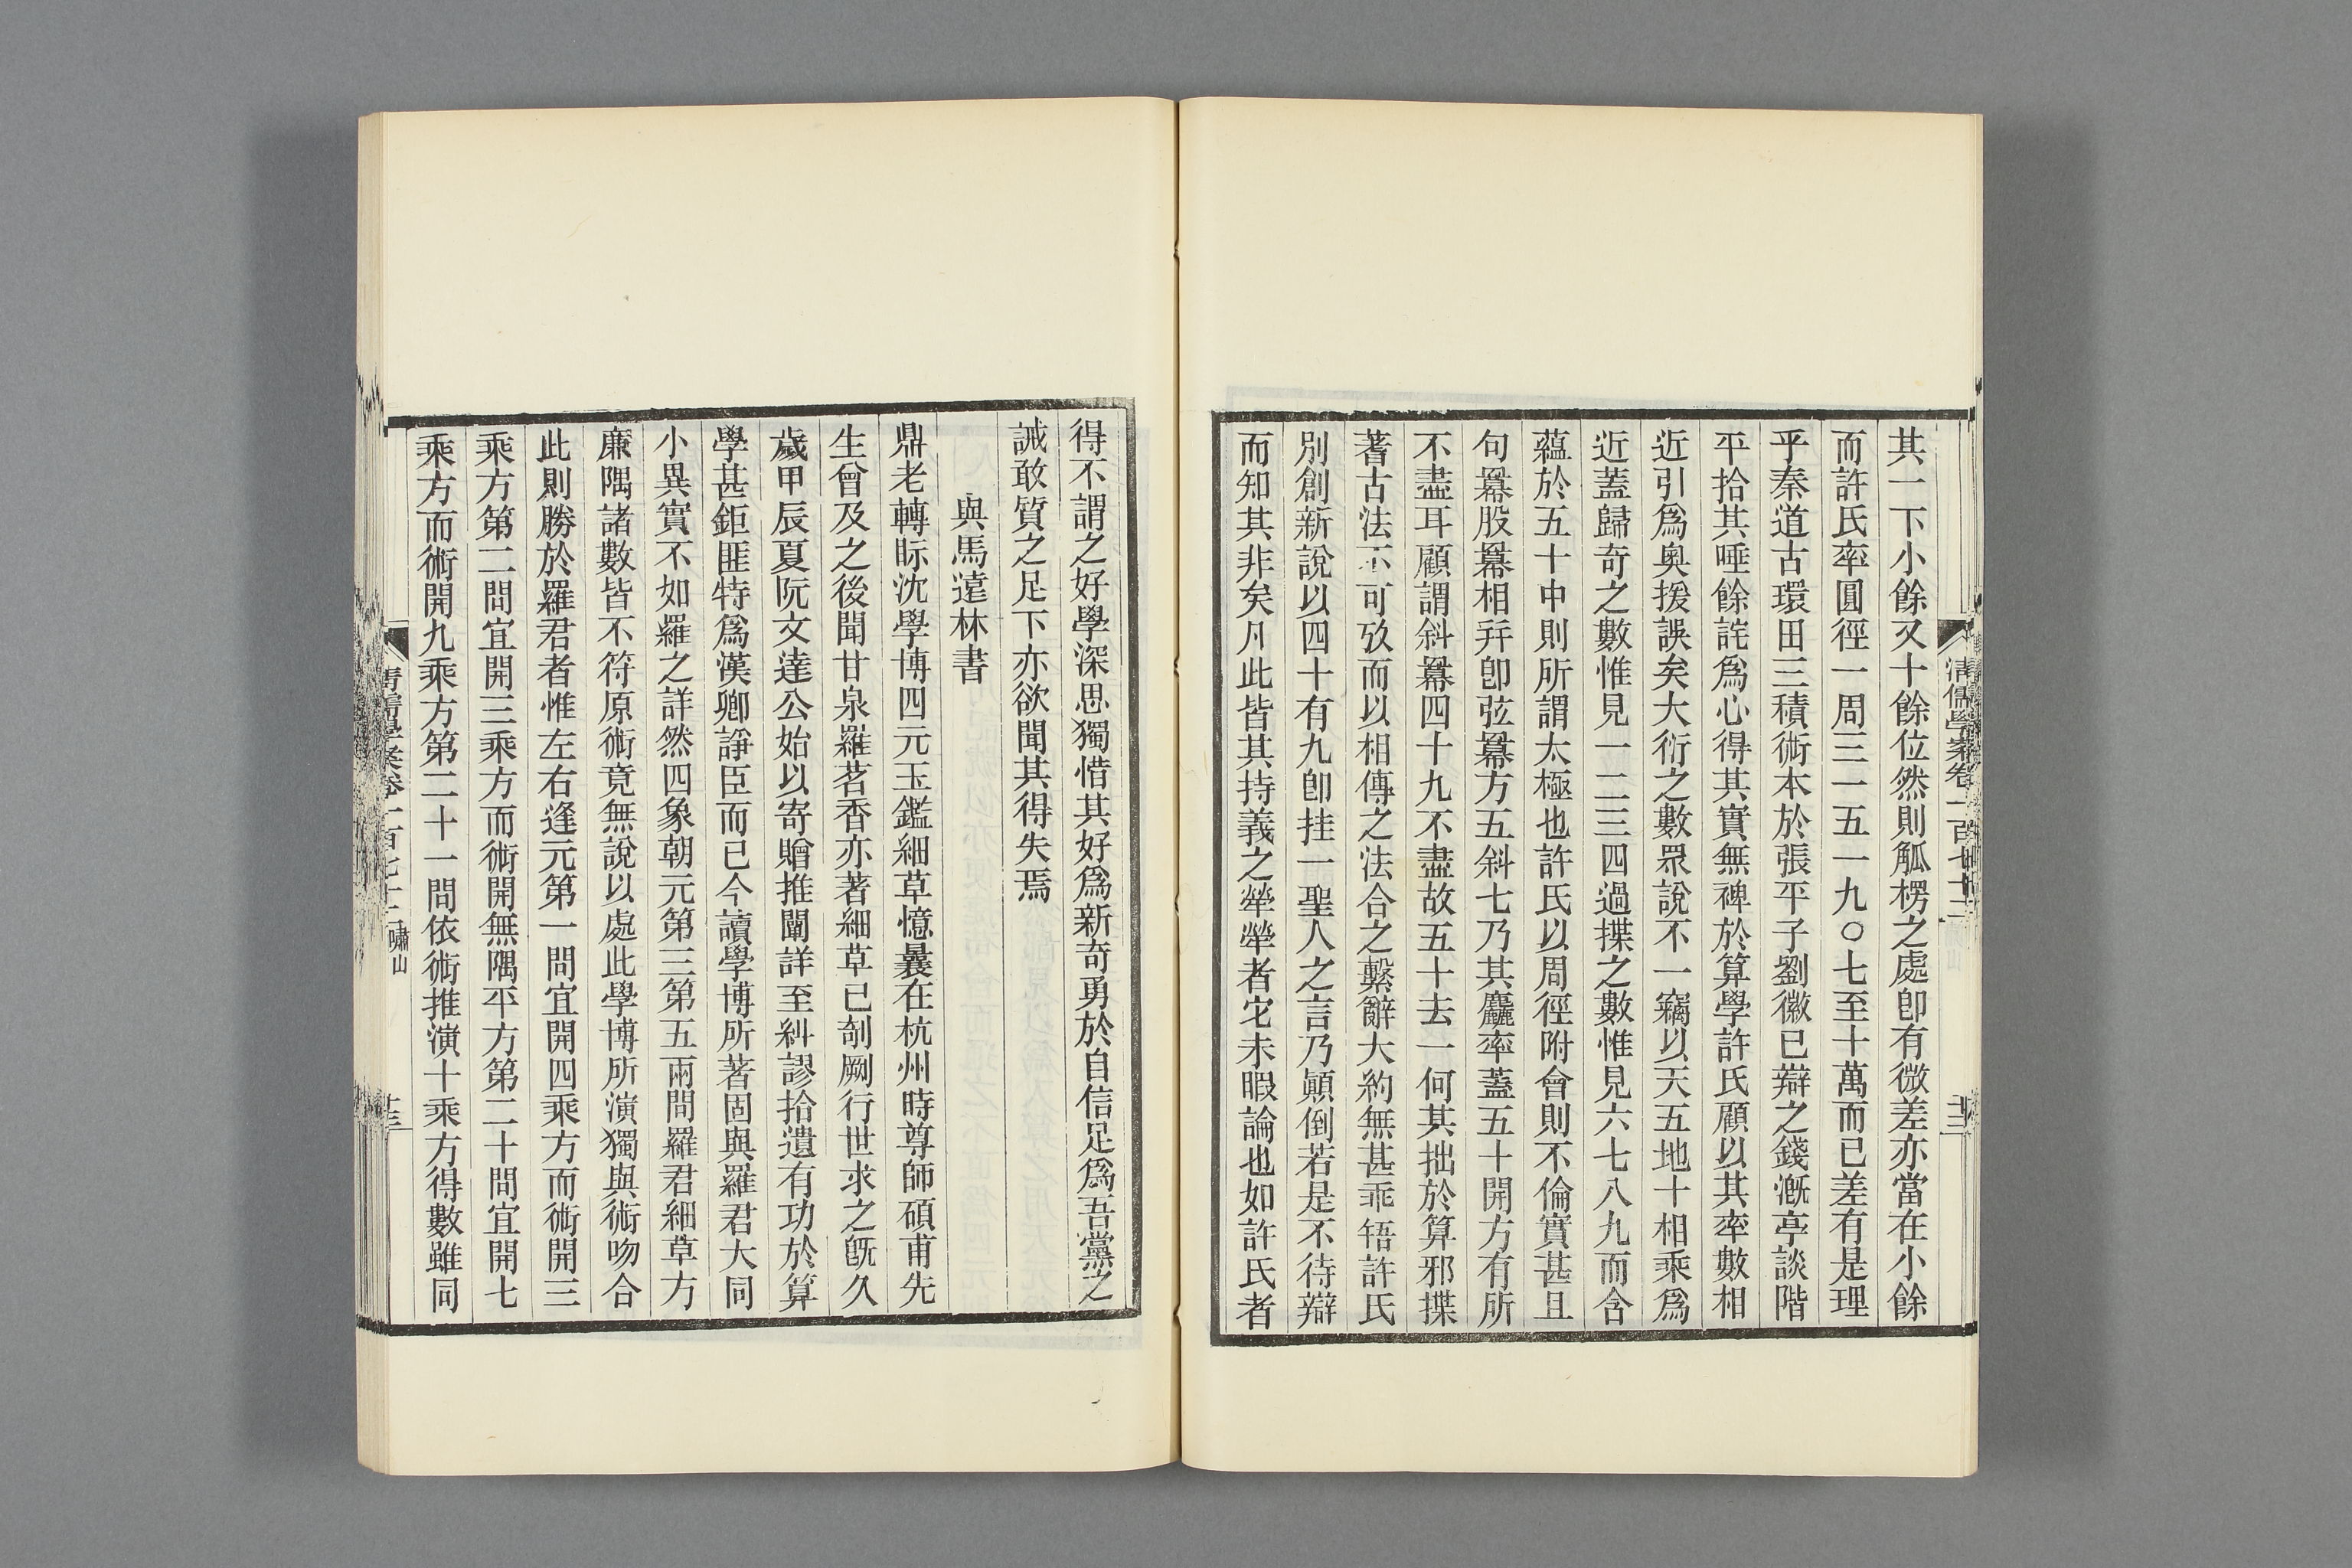 其一下小餘又十餘位然則觚楞之處卽有微差亦當在小餘
而許氏率圓徑一周三一五一九〇七至十萬而已差有是理
乎秦道古環田三積術本於張平子劉徽已辯之錢漑亭談階
平拾其唾餘詫爲心得其實無裨於算學許氏顧以其率數相
近引爲奧援誤矣大衍之數眾說不一竊以天五地十相乘爲
近蓋歸奇之數惟見一二三四過揲之數惟見六七八九而含
蘊於五十中則所謂太極也許氏以周徑附會則不倫實甚且
句羃股羃相幷卽弦羃方五斜七乃其麤率蓋五十開方有所
不盡耳顧謂斜羃四十九不盡故五十去一何其拙於算邪揲
蓍古法不可攷而以相傳之法合之繫辭大約無甚乖牾許氏
別創新說以四十有九卽挂一聖人之言乃顚倒若是不待辯
而知其非矣凡此皆其持義之犖犖者它未暇論也如許氏者
清儒學案卷一百七十二
得不謂之好學深思獨惜其好爲新奇勇於自信足爲吾黨之
誡敢質之足下亦欲聞其得失焉
與馬遠林書
鼎老轉眎沈學博四元玉鑑細草憶曩在杭州時尊師碩甫先
生曾及之後聞甘泉羅茗香亦著細草已剞劂行世求之旣久
歲甲辰夏阮文達公始以寄贈推闡詳至糾謬拾遺有功於算
學甚鉅匪特爲漢卿諍臣而已今讀學博所著固與羅君大同
小異實不如羅之詳然四象朝元第三第五兩問羅君細草方
廉隅諸數皆不符原術竟無說以處此學博所演獨與術吻合
此則勝於羅君者惟左右逢元第一問宜開四乘方而術開三
乘方第二問宜開三乘方而術開無隅平方第二十問宜開七
乘方而術開九乘方第二十一問依術推演十乘方得數雖同
清儒學案卷一百七十二 嘯山 十三